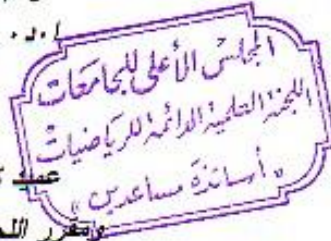 ا.د.
المجلس الأعلى للجامعات
اللجنة العلمية الدائمة للرياضيات
" أساتذة مساعدين "
عميد
ومقرر اللج